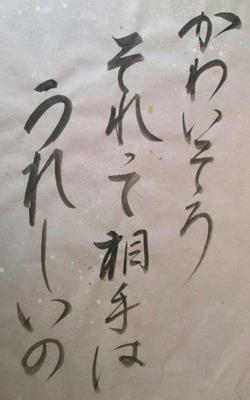 かわいそう
それって相手は
うれしいの